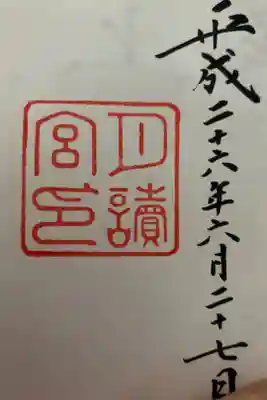 平成二十六年六月二十七日
月讀
宮印